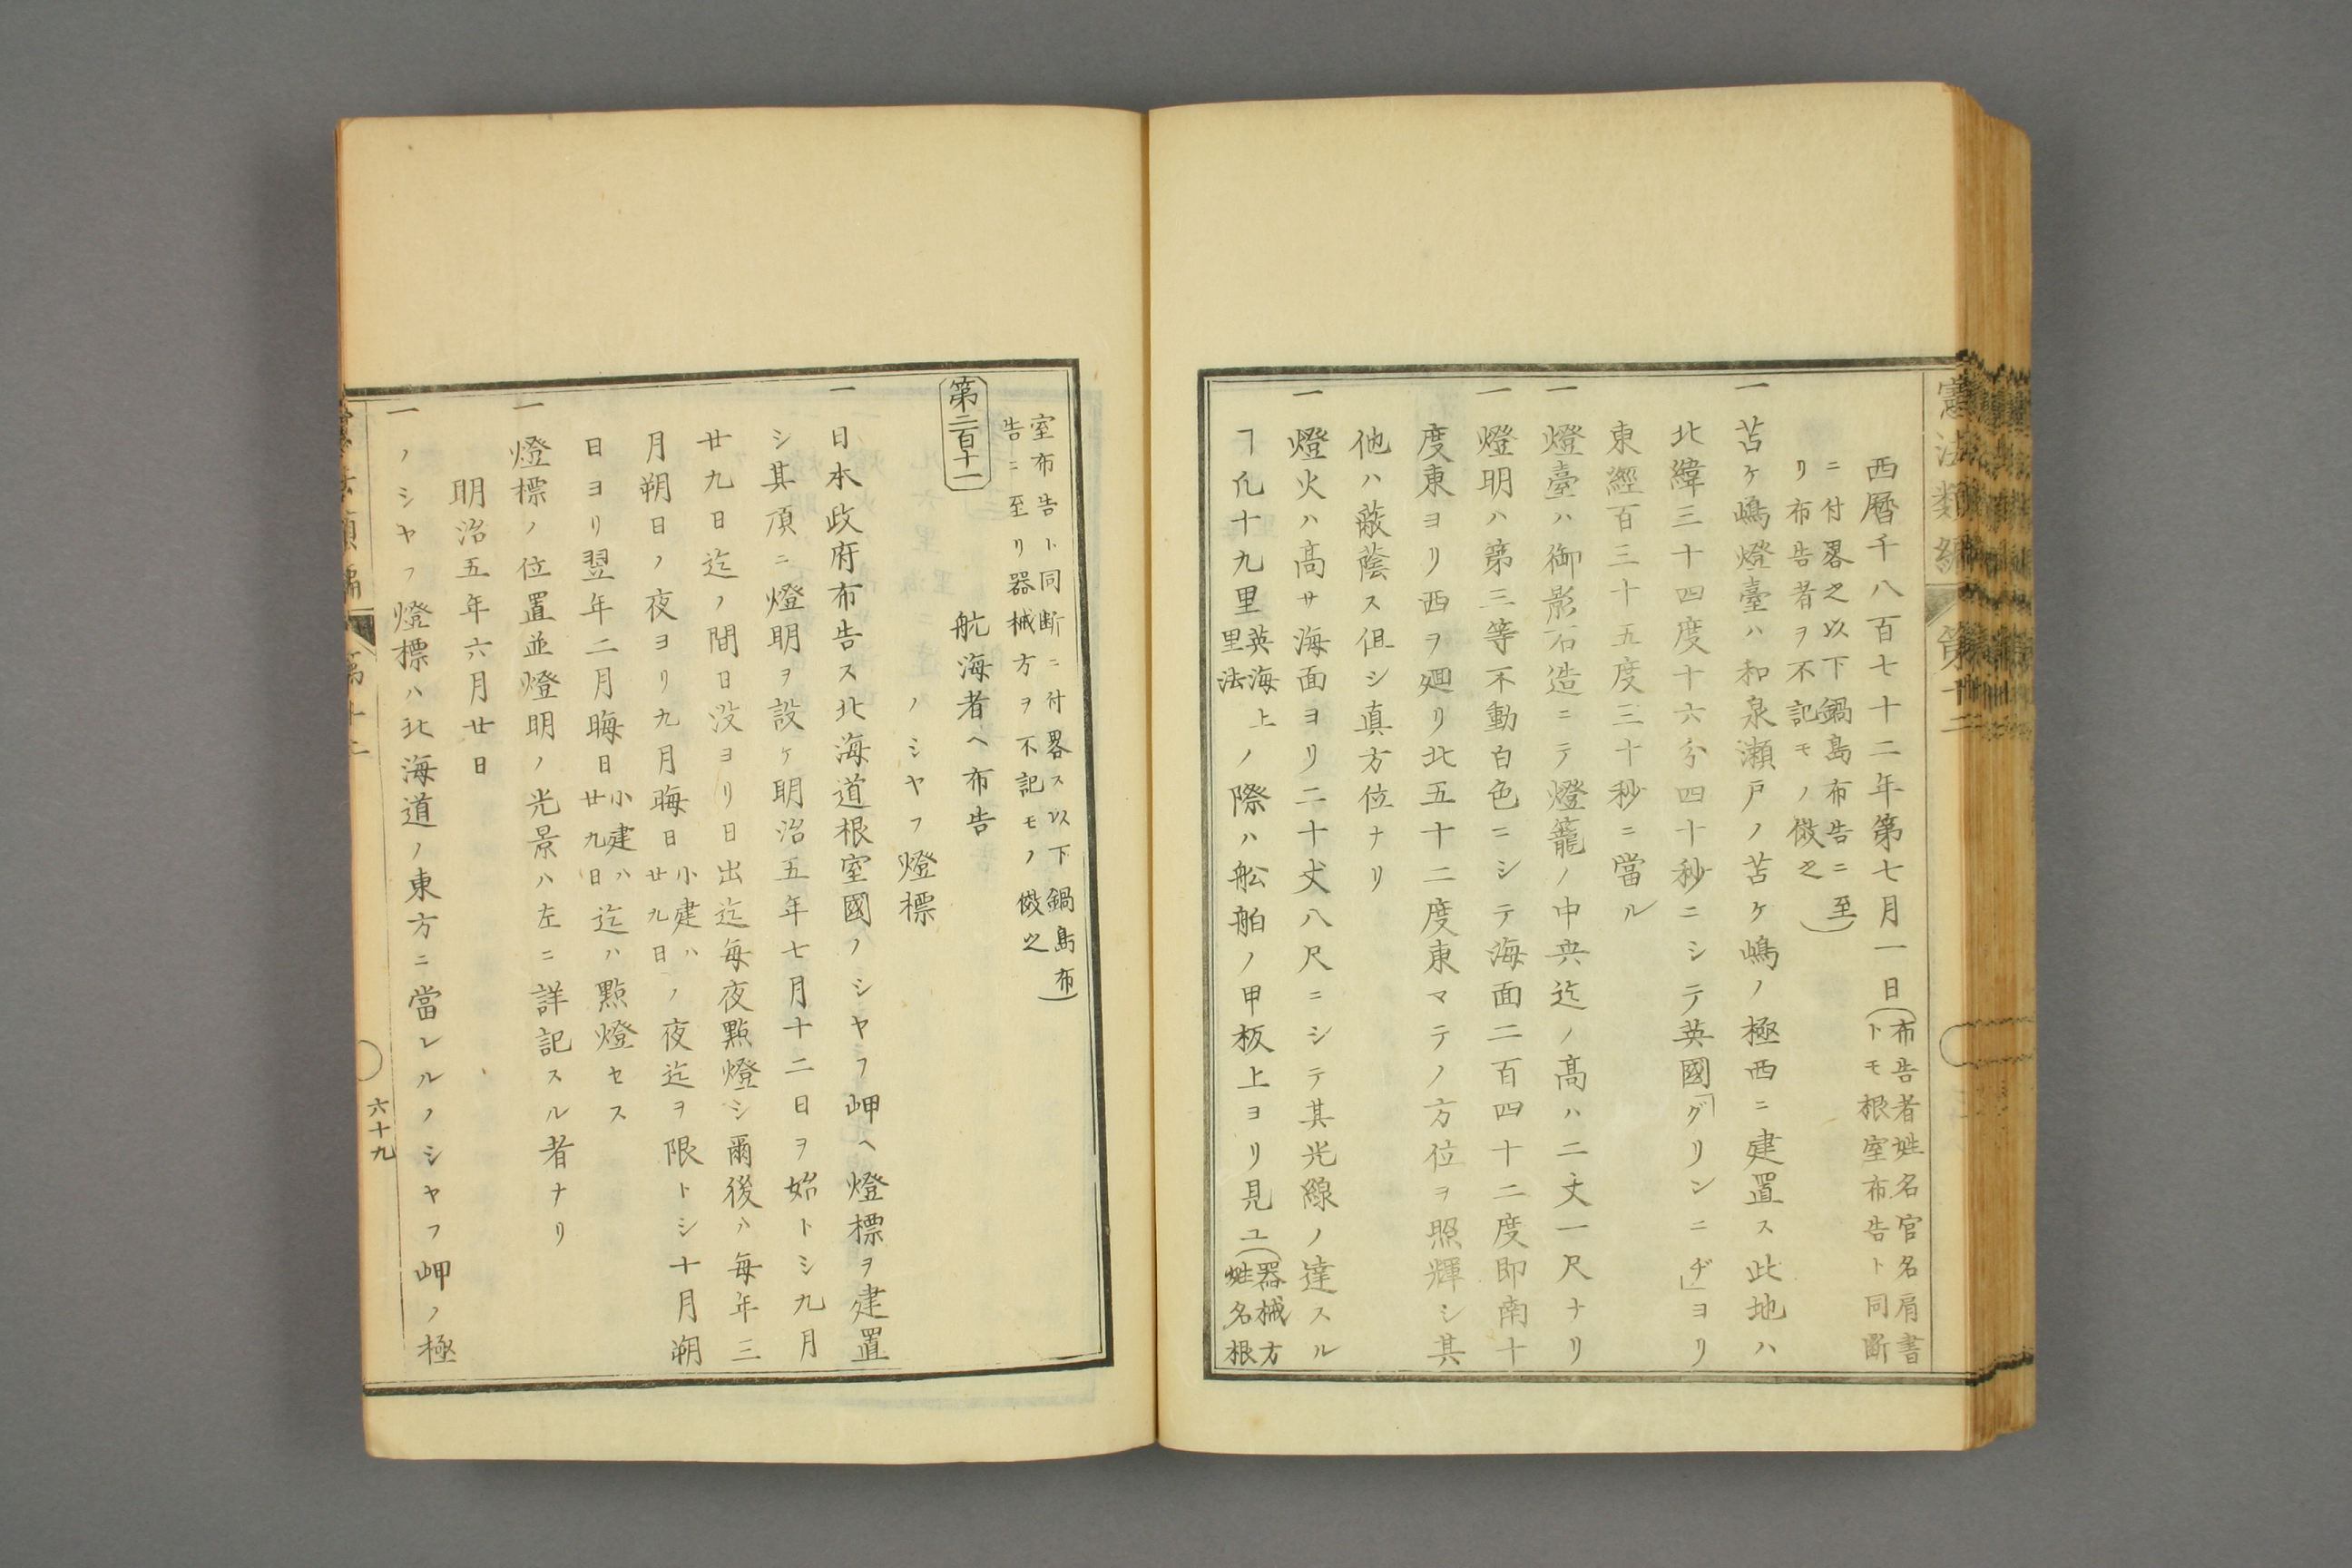 憲法類編
第十二
西曆千八百七十二年第七月一日(布告者姓名官名肩書
トモ根室布告ト同斷
ニ付畧之以下鍋島布告ニ至
リ布告者ヲ不記モノ倣之)
一苫ケ嶋燈臺ハ和泉瀬戸ノ苫ケ嶋ノ極西ニ建置ス此地ハ
北緯三十四度十六分四十秒ニシテ英國「グリンニヂ」ヨリ
東經百三十五度三十秒ニ當ル
一燈臺ハ御影石造ニテ燈籠ノ中央迄ノ髙ハ二丈一尺ナリ
一燈明ハ第三等不動白色ニシテ海面二百四十二度即南十
度東ヨリ西ヲ廻リ北五十二度東マテノ方位ヲ照輝シ其
他ハ蔽蔭ス但シ真方位ナリ
一燈火ハ髙サ海面ヨリ二十丈八尺ニシテ其光線ノ達スル
ヿ凡十九里英海
里法上ノ際ハ舩舶ノ甲板上ヨリ見ユ(器械方
姓名根
室布告ト同断ニ付畧ス以下鍋島布
告ニ至リ器械方ヲ不記モノ倣之)
第二百十一
航海者ヘ布告
ノシヤフ燈標
一日本政府布告ス北海道根室國ノシヤフ岬ヘ燈標ヲ建置
シ其頂ニ燈明ヲ設ケ明治五年七月十二日ヲ始トシ九月
廿九日迄ノ間日没ヨリ日出迄每夜點燈シ爾後ハ每年三
月朔日ノ夜ヨリ九月晦日小建ハ
廿九日ノ夜迄ヲ限トシ十月朔
日ヨリ翌年二月晦日小建ハ
廿九日迄ハ點燈セス
一燈標ノ位置並燈明ノ光景ハ左ニ詳記スル者ナリ
明治五年六月廿日
一ノシヤフ燈標ハ北海道ノ東方ニ當レルノシヤフ岬ノ極
六十九